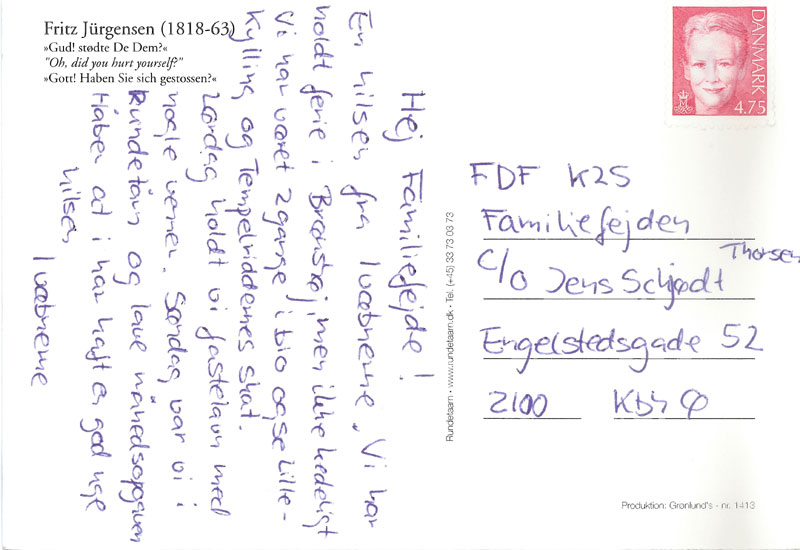 Fritz Jürgensen (1818-63)
»Gud! stødte De Dem?«
"Oh, did you hurt yourself?"
»Gott! Haben Sie sich gestossen?«
DANMARK
4.75
Hej Familiefejde!
En hilsen fra Ivæbnerne. Vi har
holdt ferie i Brønshøj, men ikke kedeligt
Vi har været 2 gange i bio og se Lille-
kylling og Tempelriddernes skat.
Lørdag holdt vi fastelavn med
nogle venner. Søndag var vi i
Rundetårn og lave månedsopgaven
Håber at i har haft en god uge
hilsen
Ivæbnerne
Rundetaarn - www.rundetaarn.dk - Tel. (+45) 33 73 03 73
FDF K25
Familiefejden
C/O Jens Schjødt Thorsen
Engelstedsgade 52
2100 Kbh Ø
Produktion: Grønlund's - nr. 1413